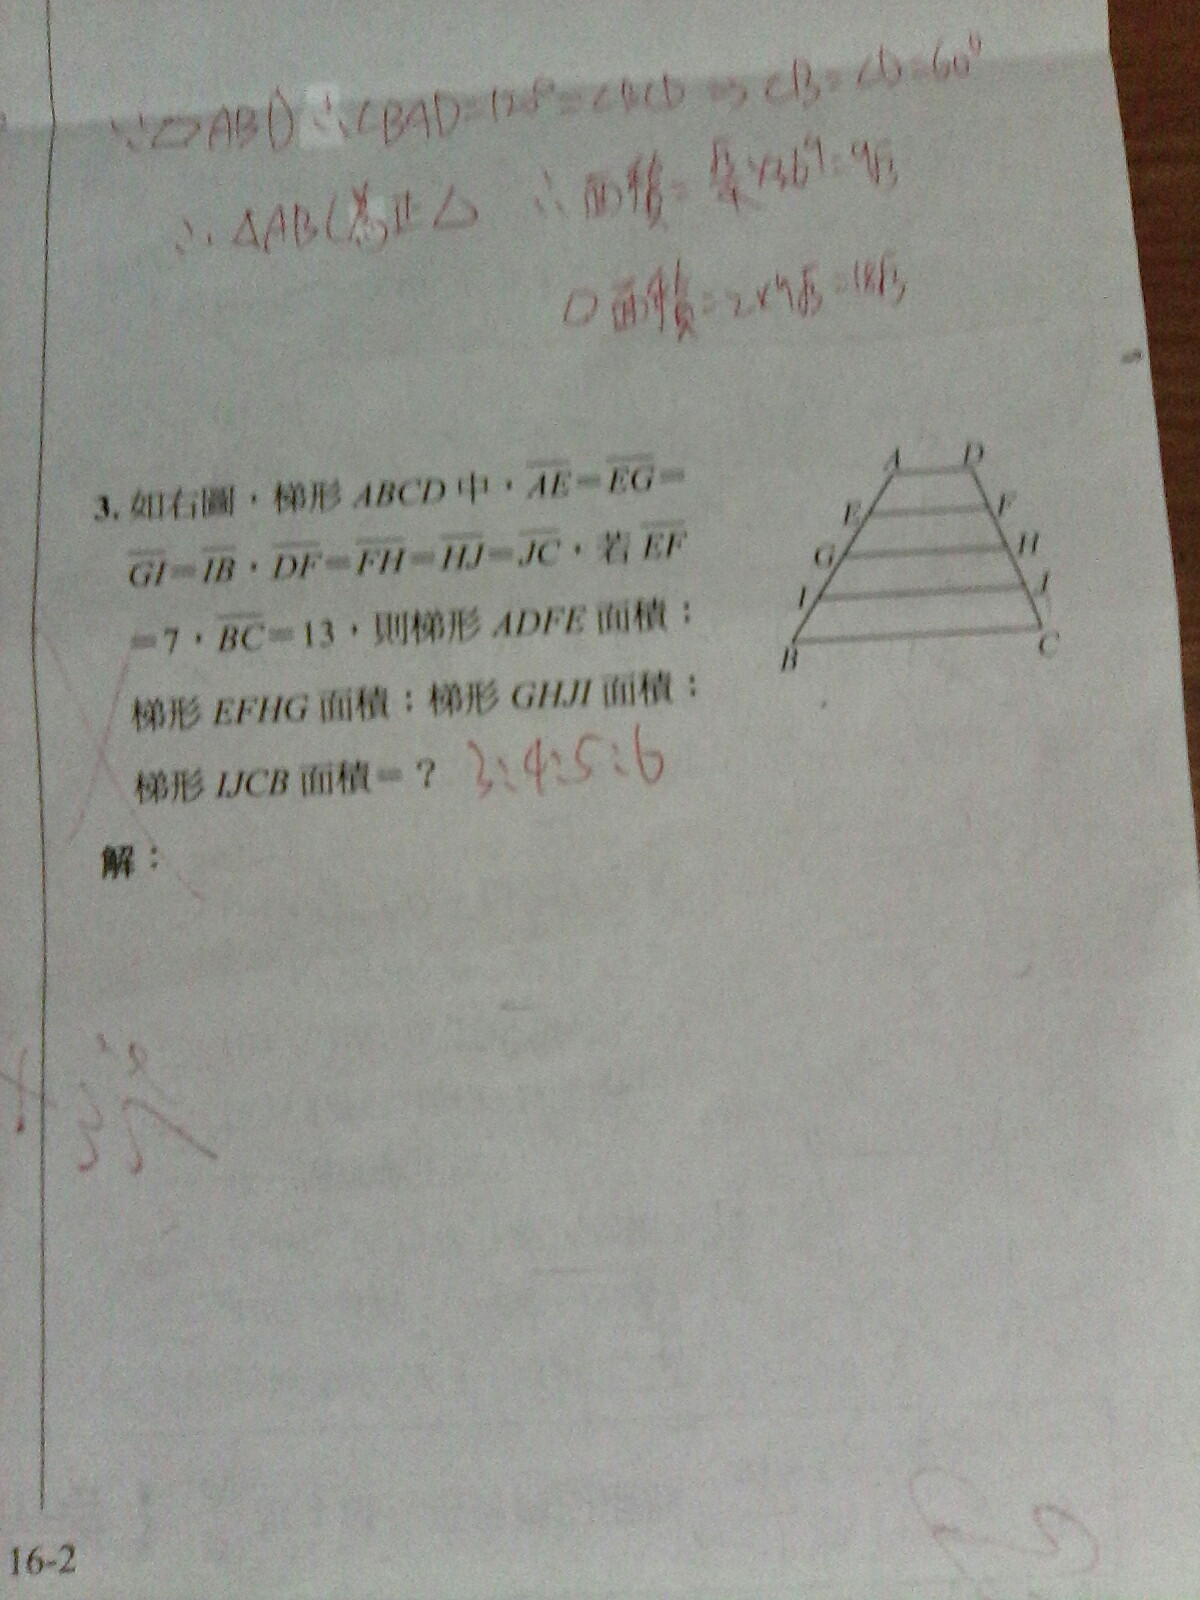 ∵▱ABCD ∴∠BAD=120°=∠BCD ⇒ ∠B=∠D=60°
∴△ABC為正△ ∴面積=
▱面積=2×9√3=18√3
3. 如右圖,梯形ABCD中,AE=EG=
GI=IB,DF=FH=HJ=JC,若EF
=7,BC=13,則梯形ADFE面積:
梯形EFHG面積:梯形GHJI面積:
梯形IJCB面積=? 3:4:5:6
解:
A D
E F
G H
I J
B C
16-2